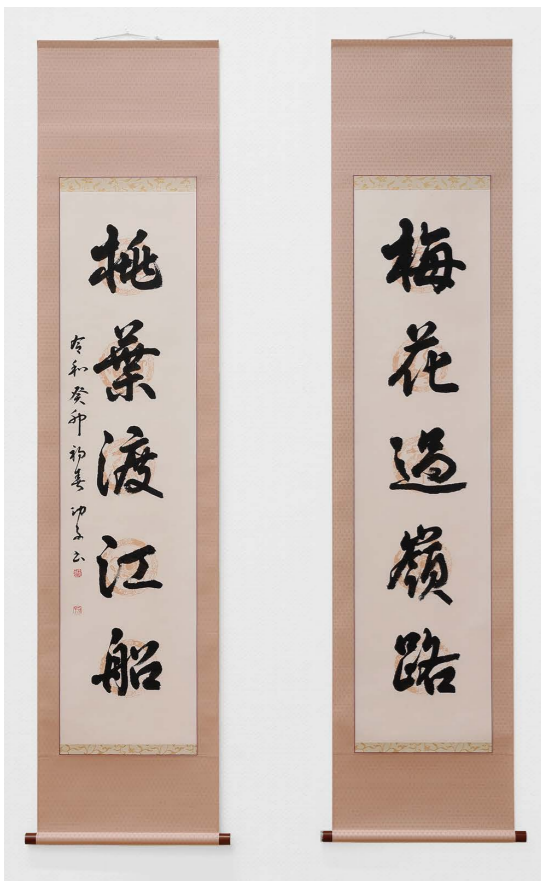 梅花過嶺路
桃葉渡江船
令和癸卯初春功子書